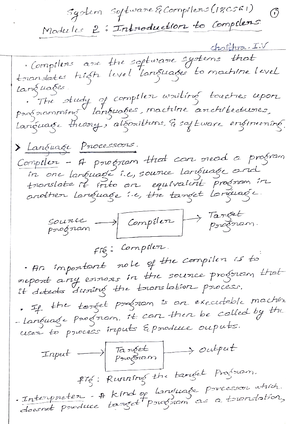 System Software & Compilers (18CS61)
1
Module 2 : Introduction to Compilers
Chaithra. I.V
· Compilers are the software systems that
translates high level languages to machine level
languages
· The study of compiler writing touches upon
programming languages, machine architectures,
language theory, algorithms, & software engineering.
> Language Processors.
Compiler - A program that can read a program
in one language i.e, source language and
translate it into an equivalent program in
another language i.e, the target language.
Source program → Compiler → Target program.
fig: Compiler.
· An important role of the compiler is to
report any errors in the source program that
it detects during the translation process.
· If the target program is an executable machine
-language program, it can then be called by the
user to process inputs & produce ouputs.
Input → Target Program → Output
fig: Running the target Program.
· Interpreter - A kind of language processor which
doesnot produce target program as a translation,